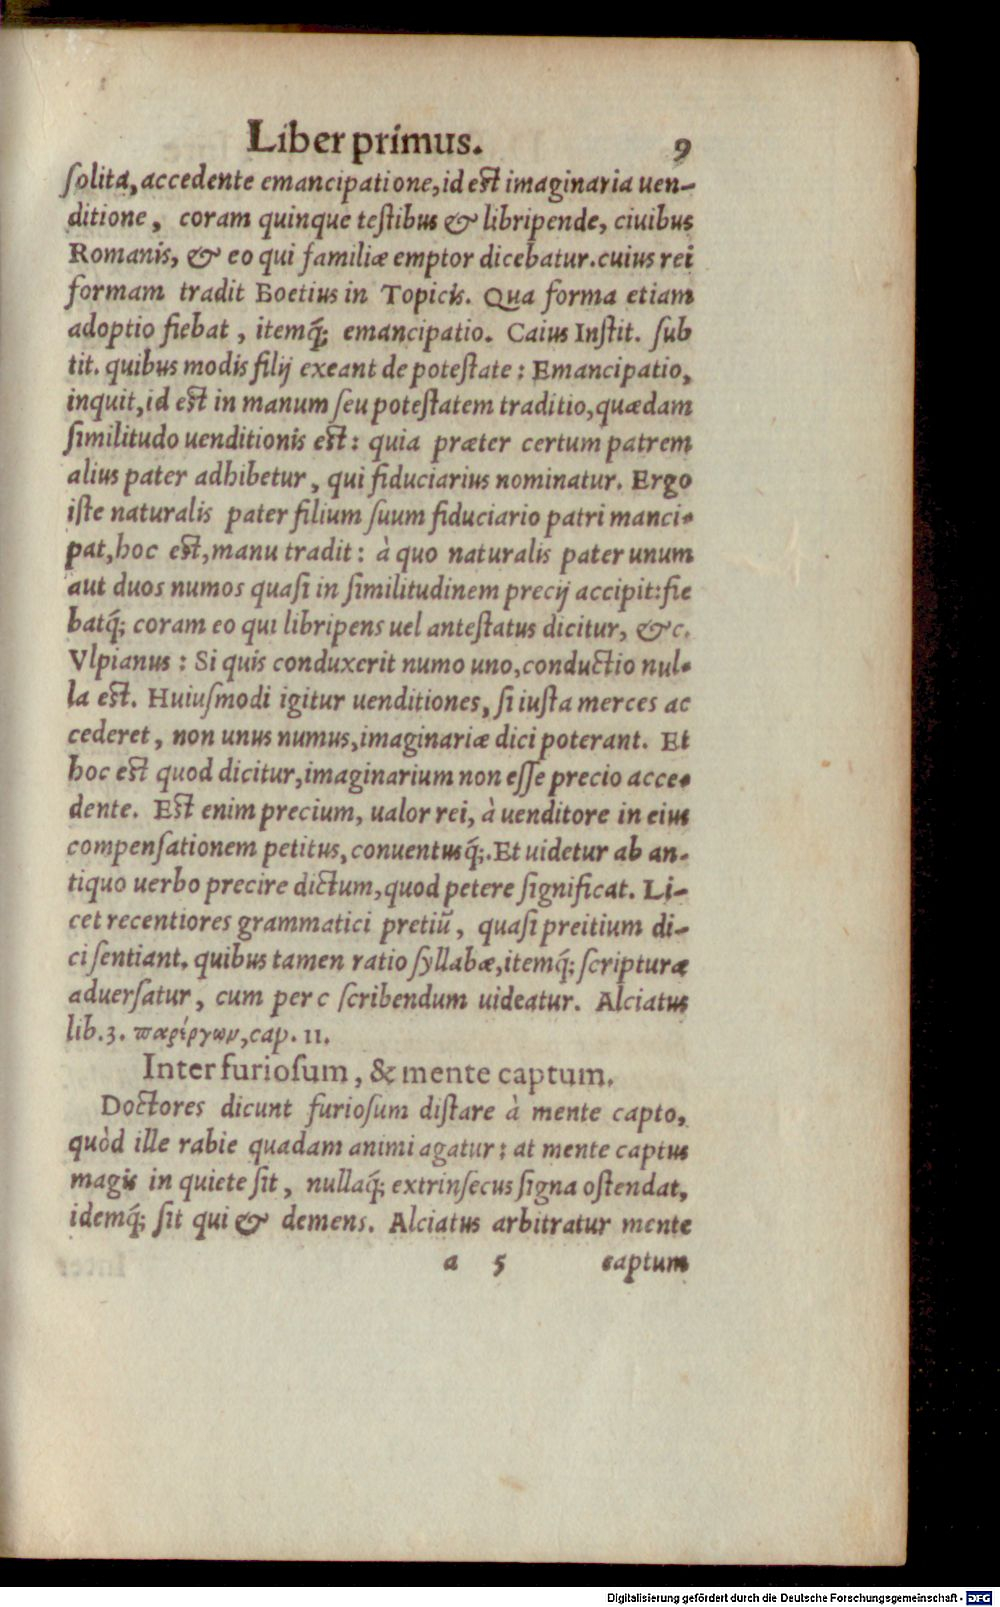 Liber primus. 9
ſolita, accedente emancipatione, id est imaginaria uen-
ditione, coram quinque teſtibus & libripende, ciuibus
Romanis, & eo qui familiæ emptor dicebatur. cuius rei
formam tradit Boetius in Topicis. Qua forma etiam
adoptio fiebat, itemq́; emancipatio. Caius Inſtit. ſub
tit. quibus modis filij exeant de poteſtate: Emancipatio,
inquit, id est in manum ſeu poteſtatem traditio, quædam
ſimilitudo uenditionis est: quia præter certum patrem
alius pater adhibetur, qui fiduciarius nominatur. Ergo
iſte naturalis pater filium ſuum fiduciario patri manci-
pat, hoc est, manu tradit: à quo naturalis pater unum
aut duos numos quaſi in ſimilitudinem precij accipit: fie
batq́; coram eo qui libripens uel anteſtatus dicitur, &c.
Vlpianus: Si quis conduxerit numo uno, conductio nul-
la est. Huiuſmodi igitur uenditiones, ſi iuſta merces ac
cederet, non unus numus, imaginariæ dici poterant. Et
hoc est quod dicitur, imaginarium non eſſe precio acce-
dente. Est enim precium, ualor rei, à uenditore in eius
compenſationem petitus, conuentusq́;. Et uidetur ab an-
tiquo uerbo precire dictum, quod petere ſignificat. Li-
cet recentiores grammatici pretiū, quaſi preitium di-
ci ſentiant. quibus tamen ratio ſyllabæ, itemq́; ſcripturæ
aduerſatur, cum per c ſcribendum uideatur. Alciatus
lib. 3. παρέργων, cap. 11.
Inter furioſum, & mente captum.
Doctores dicunt furioſum diſtare à mente capto,
quòd ille rabie quadam animi agatur: at mente captus
magis in quiete ſit, nullaq́; extrinſecus ſigna oſtendat,
idemq́; ſit qui & demens. Alciatus arbitratur mente
a 5 captum
Digitalisierung gefördert durch die Deutsche Forschungsgemeinschaft - DFG